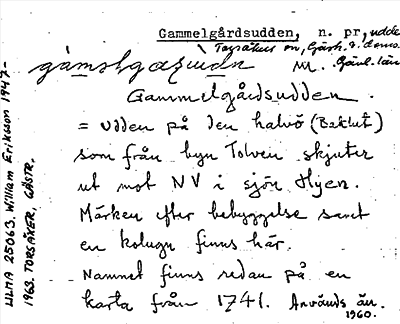 Gammelgårdsudden, n. pr., udde
Torsåkers sn, Gästr. o. doms.
M. Gävl. län
Gammelgårdsudden.
= udden på den halvö (Beklut)
som från byn Tolven skjuter
ut mot NV i sjön Hyen.
Märken efter bebyggelse samt
en kolugn finns här.
Namnet finns redan på en
karta från 1741. Används än.
1960.
ULMA 25063. William Eriksson 1947-
1963. TORSÅKER, GÄSTR.